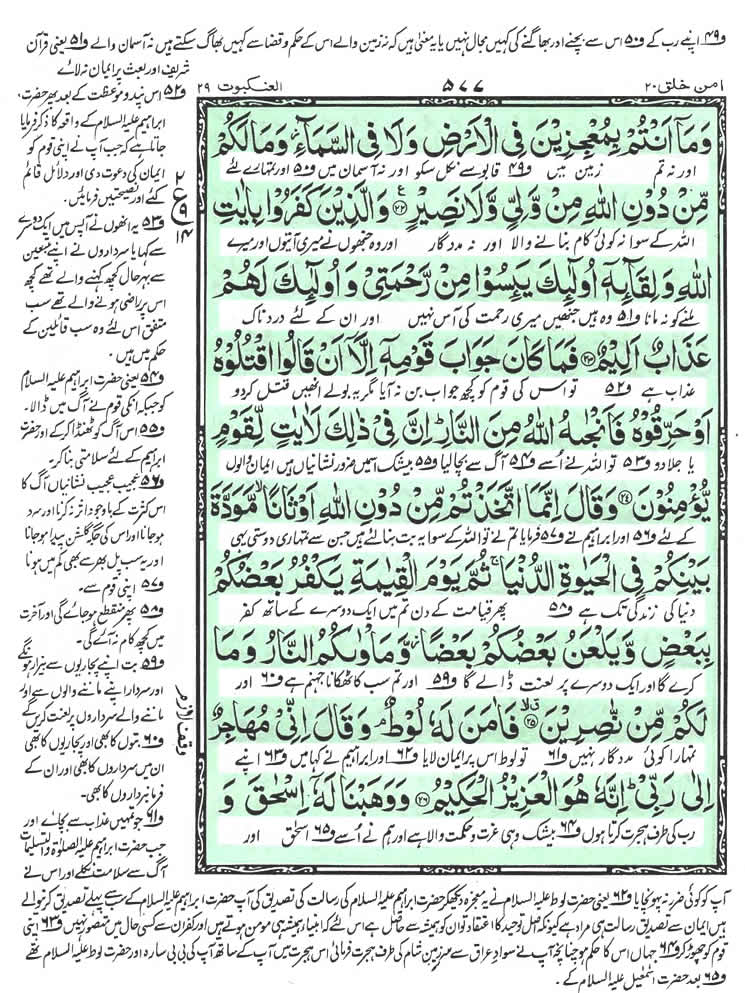 و۴۹ اپنے رب کے و۵۰ اس سے بچنے اور بھاگنے کی کہیں مجال نہیں یا یہ معنیٰ ہیں کہ نہ زمین والے اس کے حکم و قضا سے کہیں بھاگ سکتے ہیں نہ آسمان والے و۵۱ یعنی قرآن
شریف اور بعث پر ایمان نہ لائے
امن خلق ۲۰
۵۷۷
العنکبوت ۲۹
وَمَآ اَنْتُمْ بِمُعْجِزِیْنَ فِی الْاَرْضِ وَلَا فِی السَّمَآءِ وَمَا لَكُمْ
اور نہ تم زمین میں و۴۹ قابو سے نکل سکو اور نہ آسمان میں و۵۰ اور تمہارے لئے
مِّنْ دُوْنِ اللّٰهِ مِنْ وَّلِیٍّ وَّلَا نَصِیْرٍ ﴿۲۲﴾ وَالَّذِیْنَ كَفَرُوْا بِاٰیٰتِ
اللہ کے سوا نہ کوئی کام بنانے والا اور نہ مدد گار اور وہ جنھوں نے میری آیتوں اور میرے
اللّٰهِ وَلِقَآىِٕهٖۤ اُولٰٓىِٕكَ یَىِٕسُوْا مِنْ رَّحْمَتِیْ وَ اُولٰٓىِٕكَ لَهُمْ
ملنے کو نہ مانا و۵۱ وہ ہیں جنھیں میری رحمت کی آس نہیں اور ان کے لئے درد ناک
عَذَابٌ اَلِیْمٌ ﴿۲۳﴾ فَمَا كَانَ جَوَابَ قَوْمِهٖۤ اِلَّاۤ اَنْ قَالُوا اقْتُلُوْهُ
عذاب ہے و۵۲ تو اس کی قوم کو کچھ جواب بن نہ آیا مگر یہ بولے انھیں قتل کردو
اَوْ حَرِّقُوْهُ فَاَنْجٰىهُ اللّٰهُ مِنَ النَّارِ اِنَّ فِیْ ذٰلِكَ لَاٰیٰتٍ لِّقَوْمٍ
یا جلا دو و۵۳ تو اللہ نے اُسے و۵۴ آگ سے بچا لیا و۵۵ بیشک اسمیں ضرور نشانیاں ہیں ایمان والوں
یُّؤْمِنُوْنَ ﴿۲۴﴾ وَقَالَ اِنَّمَا اتَّخَذْتُمْ مِّنْ دُوْنِ اللّٰهِ اَوْثَانًا مَّوَدَّةَ
کے لئے و۵۶ اور ابراہیم نے و۵۷ فرمایا تم نے تو اللہ کے سوا یہ بت بنا لئے ہیں جن سے تمہاری دوستی یہی
بَیْنِكُمْ فِی الْحَیٰوةِ الدُّنْیَا ثُمَّ یَوْمَ الْقِیٰمَةِ یَكْفُرُ بَعْضُكُمْ
دنیا کی زندگی تک ہے و۵۸ پھر قیامت کے دن تم میں ایک دوسرے کے ساتھ کفر
بِبَعْضٍ وَّیَلْعَنُ بَعْضُكُمْ بَعْضًا وَّمَاْوٰىكُمُ النَّارُ وَمَا
کرے گا اور ایک دوسرے پر لعنت ڈالے گا و۵۹ اور تم سب کا ٹھکانا جہنم ہے و۶۰ اور
لَكُمْ مِّنْ نّٰصِرِیْنَ ﴿۲۵﴾ فَاٰمَنَ لَهٗ لُوْطٌ وَقَالَ اِنِّیْ مُهَاجِرٌ
تمہارا کوئی مدد گار نہیں و۶۱ تو لوط اس پر ایمان لایا و۶۲ اور ابراہیم نے کہا میں و۶۳ اپنے
اِلٰی رَبِّیْ اِنَّهٗ هُوَ الْعَزِیْزُ الْحَكِیْمُ ﴿۲۶﴾ وَوَهَبْنَا لَهٗۤ اِسْحٰقَ وَ
رب کی طرف ہجرت کرتا ہوں و۶۴ بیشک وہی عزت و حکمت والا ہے اور ہم نے اُسے و۶۵ اسحٰق اور
۲
ع
۹
۱۴
وقف لازم
و۵۲ اس پند و موعظت کے بعد پھر حضرت
ابراہیم علیہ السلام کے واقعہ کا ذکر فرمایا
جاتا ہے کہ جب آپ نے اپنی قوم کو
ایمان کی دعوت دی اور دلائل قائم
کئے اور نصیحتیں فرمائیں.
و۵۳ یہ انھوں نے آپس میں ایک دوسرے
سے کہا یا سرداروں نے اپنے متبعین
سے بہرحال کچھ کہنے والے تھے کچھ
اس پر راضی ہونے والے تھے سب
متفق اس لئے وہ سب قائلین کے
حکم میں ہیں.
و۵۴ یعنی حضرت ابراہیم علیہ السلام
کو جبکہ انکی قوم نے آگ میں ڈالا.
و۵۵ اس آگ کو ٹھنڈا کرکے اور حضرت
ابراہیم کے لئے سلامتی بنا کر.
و۵۶ عجیب عجیب نشانیاں آگ کا
اس کثرت کے باوجود اثر نہ کرنا اور سرد
ہوجانا اور اس کی جگہ گلشن پیدا ہوجانا
اور یہ سب پل بھر سے بھی کم میں ہونا
و۵۷ اپنی قوم سے.
و۵۸ پھر منقطع ہوجائے گی اور آخرت
میں کچھ کام نہ آئے گی.
و۵۹ بت اپنے پجاریوں سے بیزار ہونگے
اور سردار اپنے ماننے والوں سے اور
ماننے والے سرداروں پر لعنت کریں گے
و۶۰ بتوں کا بھی اور پجاریوں کا بھی
ان میں سرداروں کا بھی اور ان کے
فرمانبرداروں کا بھی.
و۶۱ جو تمہیں عذاب سے بچائے اور
جب حضرت ابراہیم علیہ الصلوٰۃ والتسلیمات
آگ سے سلامت نکلے اور اس نے
آپ کو کوئی ضرر نہ پہونچایا و۶۲ یعنی حضرت لوط علیہ السلام نے یہ معجزہ دیکھ کر حضرت ابراہیم علیہ السلام کی رسالت کی تصدیق کی آپ حضرت ابراہیم علیہ السلام کے سب سے پہلے تصدیق کرنیوالے
ہیں ایمان سے تصدیق رسالت ہی مراد ہے کیونکہ اصل توحید کا اعتقاد تو ان کو ہمیشہ سے حاصل ہے اس لئے کہ انبیاء ہمیشہ ہی مومن ہوتے ہیں اور کفر ان سے کسی حال میں متصور نہیں و۶۳ اپنی
قوم کو چھوڑ کر و۶۴ جہاں اس کا حکم ہو چنانچہ آپ نے سواد عراق سے سرزمین شام کی طرف ہجرت فرمائی اس ہجرت میں آپ کے ساتھ آپ کی بی بی سارہ اور حضرت لوط علیہ السلام تھے
و۶۵ بعد حضرت اسمٰعیل علیہ السلام کے.